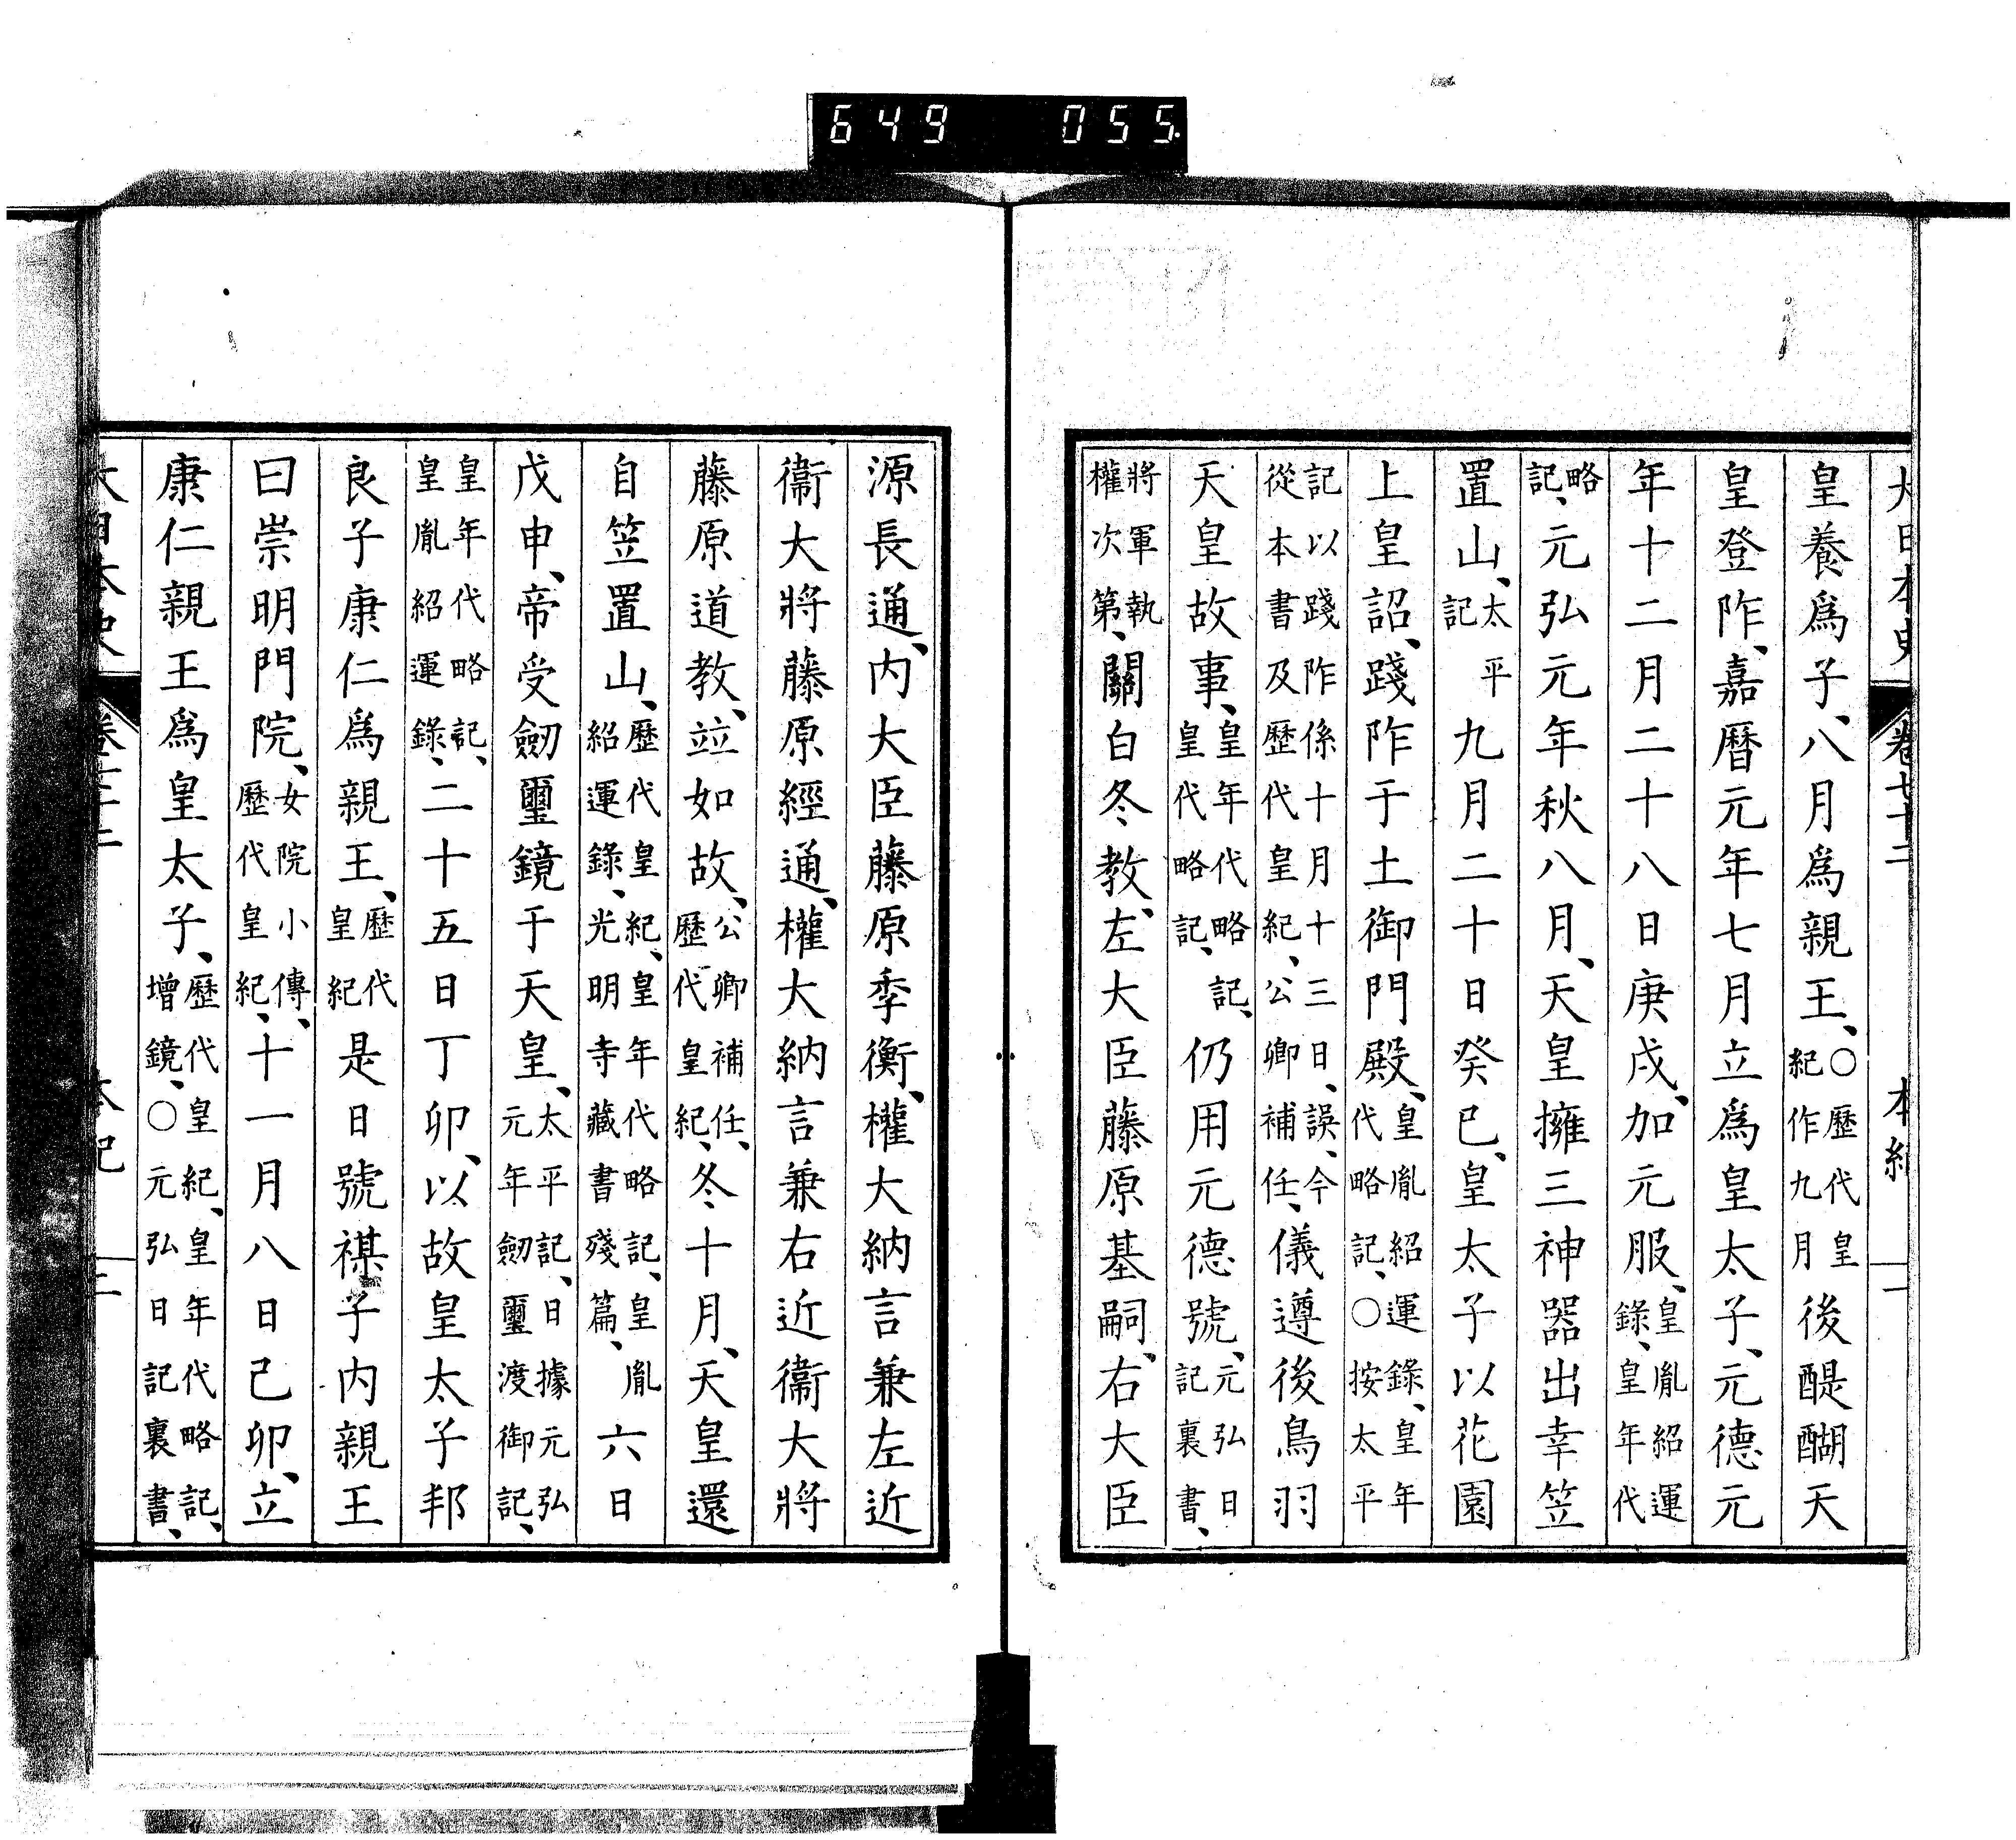 649 055
大日本史 卷七十二 本紀 一
皇養爲子、八月爲親王、○歷代皇紀作九月後醍醐天
皇登阼、嘉曆元年七月立爲皇太子、元德元
年十二月二十八日庚戌、加元服、皇胤紹運錄、皇年代
略記、元弘元年秋八月、天皇擁三神器出幸笠
置山、太平記九月二十日癸巳、皇太子以花園
上皇詔、踐阼于土御門殿、皇胤紹運錄、皇年代略記、○按太平
記以踐阼係十月十三日、誤、今從本書及歷代皇紀、公卿補任、儀遵後鳥羽
天皇故事、皇年代略記、皇代略記、仍用元德號、元弘日記裏書、
關白冬教、左大臣藤原基嗣、右大臣將軍執權次第、
源長通、內大臣藤原季衡、權大納言兼左近
衞大將藤原經通、權大納言兼右近衞大將
藤原道教、竝如故、公卿補任、歷代皇紀、冬十月、天皇還
自笠置山、歷代皇紀、皇年代略記、皇胤紹運錄、光明寺藏書殘篇、六日
戊申、帝受劒璽鏡于天皇、太平記、日據元弘元年劒璽渡御記、
皇年代略記、皇胤紹運錄、二十五日丁卯、以故皇太子邦
良子康仁爲親王、歷代皇紀是日號禖子內親王
曰崇明門院、女院小傳、歷代皇紀、十一月八日己卯、立
康仁親王爲皇太子、歷代皇紀、皇年代略記、增鏡、○元弘日記裏書、